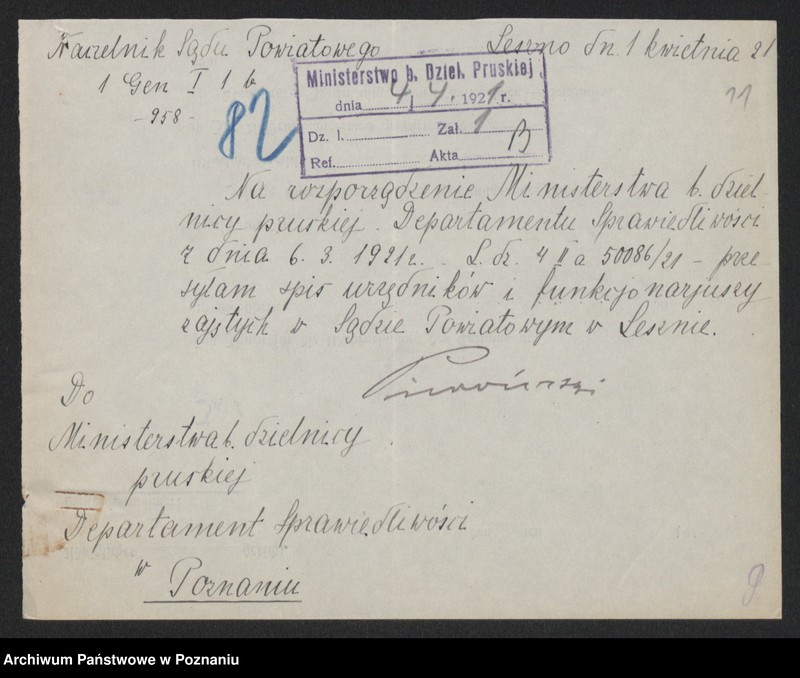 Naczelnik Sądu Powiatowego
Leszno dn. 1 kwietnia 21
1 Gen I 1 b
- 958 -
82
11
Ministerstwo b. Dziel. Pruskiej
dnia 4, 4. 1921 r.
Dz. l. Zał. 1
Ref. Akta B
Na rozporządzenie Ministerstwa b. dziel-
nicy pruskiej. Departamentu Sprawiedliwości
z dnia 6. 3. 1921 r. L. dz. 4 II a 50086/21 - prze-
syłam spis urzędników i funkcjonarjuszy
zajętych w Sądzie Powiatowym w Lesznie.
Do
Ministerstwa b. dzielnicy
pruskiej
Departament Sprawiedliwości
w Poznaniu
Archiwum Państwowe w Poznaniu